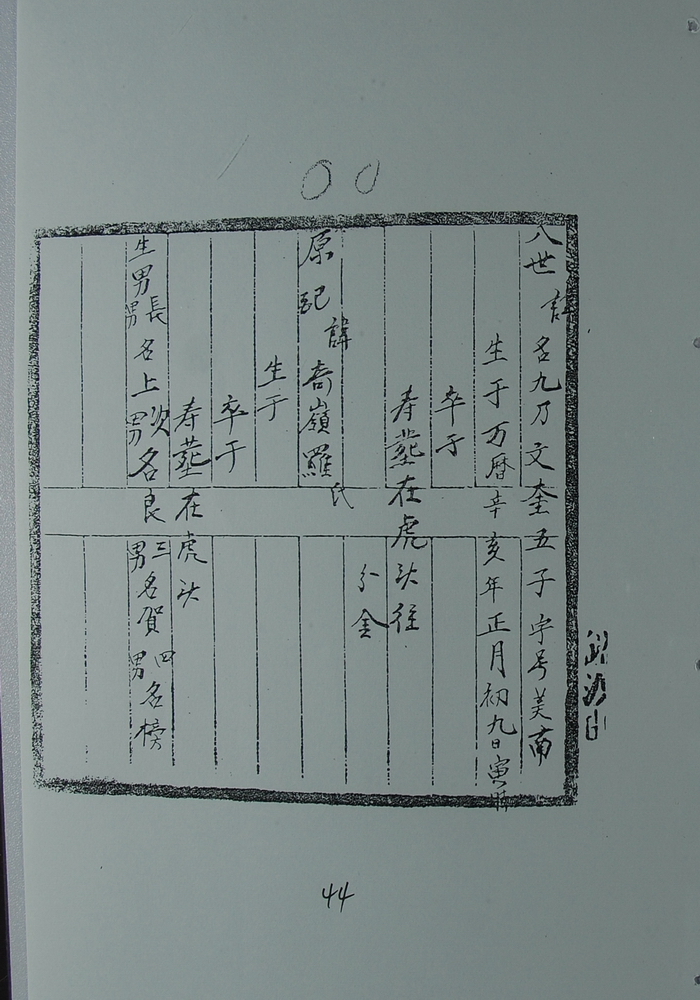 00
八世 諱名九乃文奎五子字号美南
生于万曆辛亥年正月初九日寅時
卒于
寿塟在虎头徑
分金
原配諱奇嶺羅氏
生于
卒于
寿塟在虎头
生男長男名上次男名良三男名賀四男名榜
44